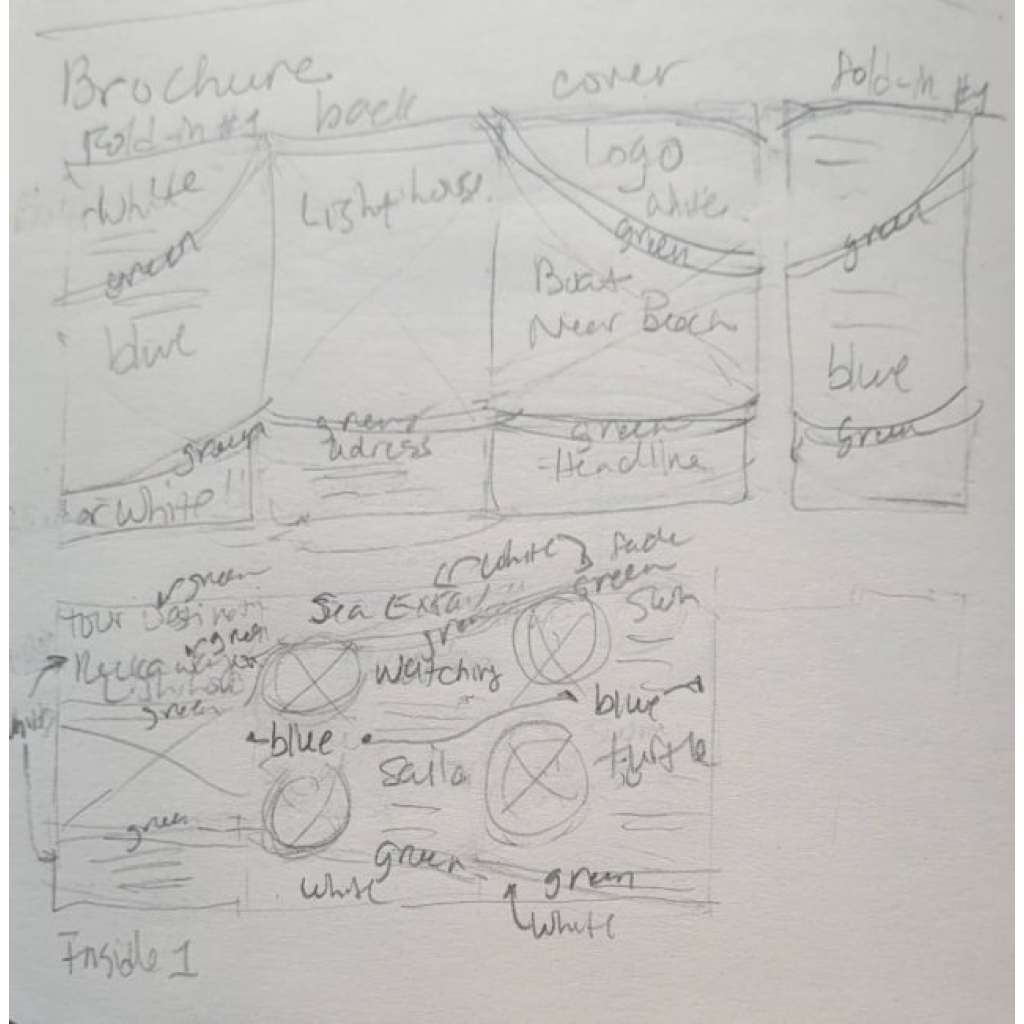 Brochure
Fold-in #1
back
cover
Fold-in #1
White
green
blue
green
or White!!
Lighthouse
green
adress
Logo
white
green
Boat
Near Beach
green
Headline
green
blue
green
green
(White)
fade
green
your
Sea
green
green
Watching
Swn
green
blue
blue
Saila
turtle
green
green
green
White
White
Inside 1